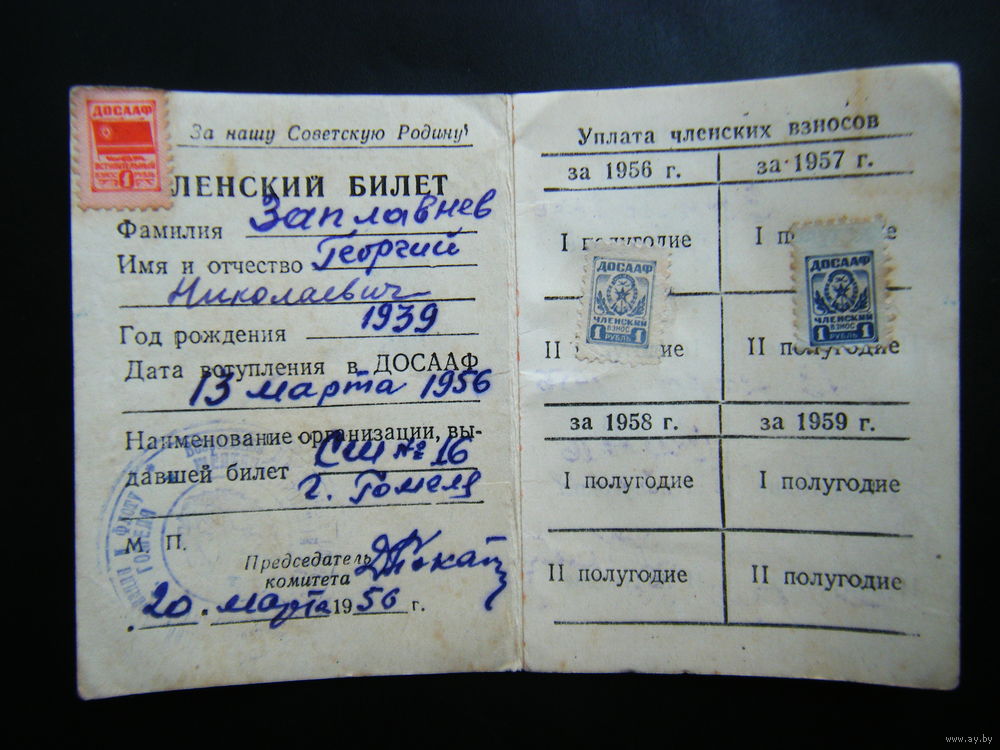 ДОСААФ
ВСТУПИТЕЛЬНЫЙ
ВЗНОС 1 РУБЛЬ
За нашу Советскую Родину!
ЛЕНСКИЙ БИЛЕТ
Фамилия Заплавнев
Имя и отчество Георгий
Николаевич
Год рождения 1939
Дата вступления в ДОСААФ
13 марта 1956
Наименование организации, вы-
давшей билет СШ № 16
г. Гомеля
М. П.
Председатель
комитета
20 марта 1956 г.
флоту
ГОМЕЛЯ
Уплата членских взносов
за 1956 г. за 1957 г.
I полугодие I п
ДОСААФ
ЧЛЕНСКИЙ
ВЗНОС
1 РУБЛЬ 1
ДОСААФ
ЧЛЕНСКИЙ
ВЗНОС
1 РУБЛЬ 1
II ие II полугодие
за 1958 г. за 1959 г.
I полугодие I полугодие
II полугодие II полугодие
www.ay.by